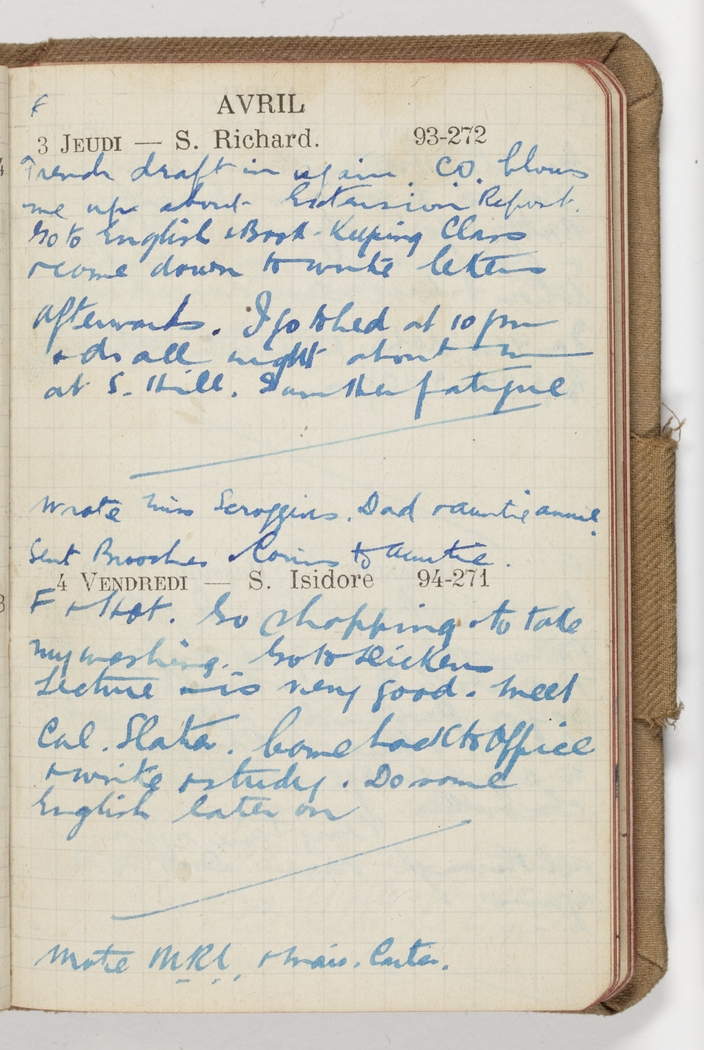 AVRIL
F
3 JEUDI — S. Richard. 93-272
French draft in again. CO. blows
me up about Extension Report.
Go to English & Book-Keeping Class
& come down to write letters
afterwards. I go to bed at 10 pm
all night about
at S. Hill. fatigue
Wrote Miss Scroggins. Dad & auntie annie.
Sent Brooches & Coins to auntie.
4 VENDREDI — S. Isidore 94-271
F & Hot. Go chopping & to take
my washing. Go to Dickens
Lecture & is very good. Meet
Col. Slater. Come back to Office
& write & study. Do some
English later on
Wrote MRL, & Mrs. Carter.